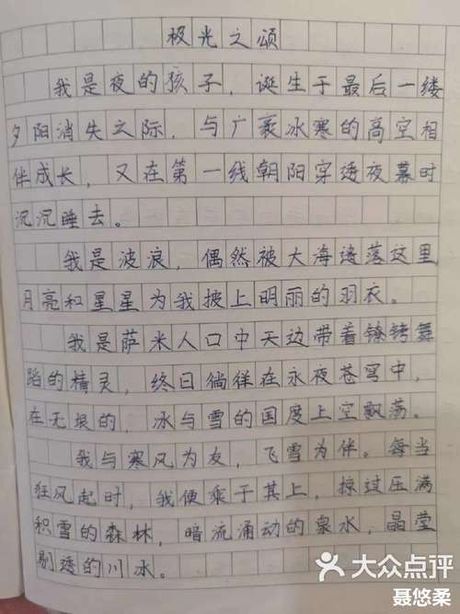 极光之颂
我是夜的孩子，诞生于最后一缕
夕阳消失之际，与广袤冰寒的高空相
伴成长，又在第一线朝阳穿透夜幕时
沉沉睡去。
我是波浪，偶然被大海遗落这里
月亮和星星为我披上明丽的羽衣。
我是萨米人口中天边带着镣铐舞
蹈的精灵，终日徜徉在永夜苍穹中，
在无垠的，冰与雪的国度上空飘荡。
我与寒风为友，飞雪为伴。每当
狂风起时，我便乘于其上，掠过压满
积雪的森林，暗流涌动的泉水，晶莹
剔透的川冰。
大众点评
聂悠柔